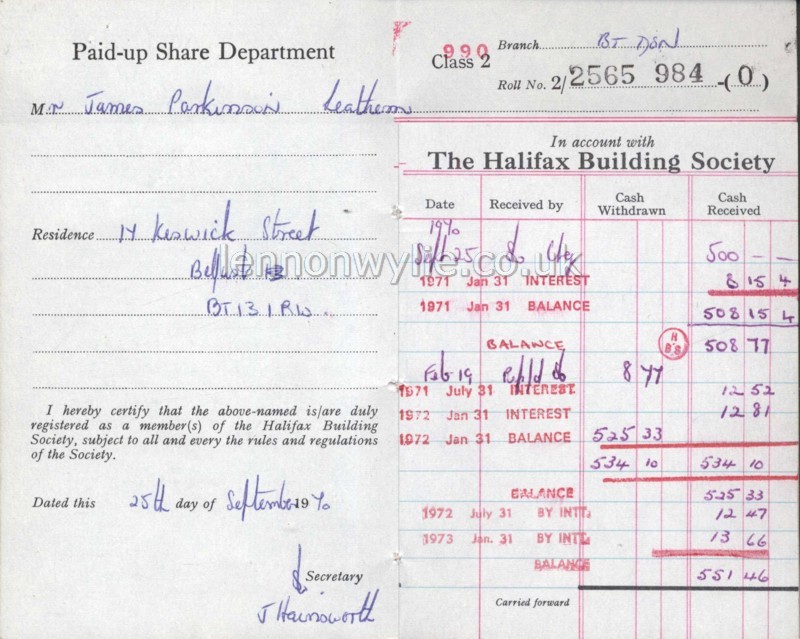 Paid-up Share Department
Mr James Parkinson Leathem
Residence 14 Keswick Street
Belfast 13
BT13 1RW
I hereby certify that the above-named is/are duly
registered as a member(s) of the Halifax Building
Society, subject to all and every the rules and regulations
of the Society.
Dated this 25th day of September 1970
Secretary
J Hainsworth
990
Class 2
Branch BT DSN
Roll No. 2/2565 984-(0)
In account with
The Halifax Building Society
Date Received by Cash Withdrawn Cash Received
1970
Sept 25 500 — —
1971 Jan 31 INTEREST 8 15 4
1971 Jan 31 BALANCE 508 15 4
BALANCE H B.S 508 77
Feb 19 8 77
1971 July 31 INTEREST 12 52
1972 Jan 31 INTEREST 12 81
1972 Jan 31 BALANCE 525 33
534 10 534 10
BALANCE 525 33
1972 July 31 BY INTT. 12 47
1973 Jan. 31 BY INTT. 13 66
BALANCE 551 46
Carried forward
lennonwylie.co.uk